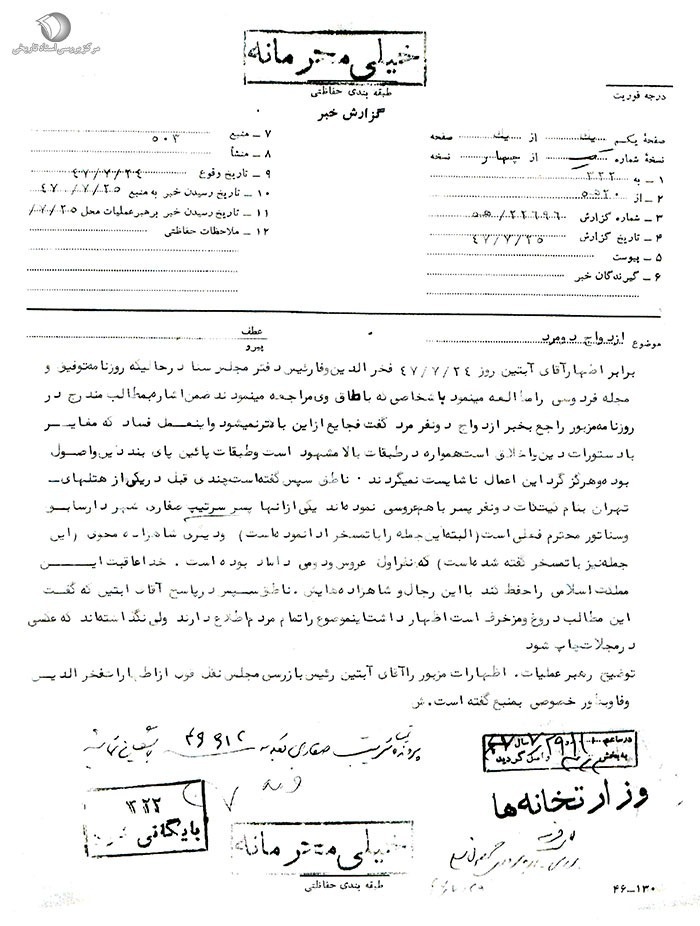 مرکز بررسی اسناد تاریخی
خیلی محرمانه
طبقه بندی حفاظتی
گزارش خبر
درجه فوریت
صفحهٔ یکم یک از یک صفحه
نسخهٔ شماره از چهار نسخه
۱ ــ به ۳۲۲
۲ ــ از ۵۵۲۰
۳ ــ شماره گزارش ۵۵/۲۲۶۹۶
۴ ــ تاریخ گزارش ۴۷/۷/۲۵
۵ ــ پیوست
۶ ــ گیرندگان خبر
۷ ــ منبع ۵۰۳
۸ ــ منشأ
۹ ــ تاریخ وقوع ۴۷/۷/۲۴
۱۰ ــ تاریخ رسیدن خبر به منبع ۴۷/۷/۲۵
۱۱ ــ تاریخ رسیدن خبر برهبر عملیات محل /۷/۲۵
۱۲ ــ ملاحظات حفاظتی
موضوع ازدواج دومرد
عطف
پیرو
برابر اظهار آقای آبتین روز ۴۷/۷/۲۴ فخر الدین وفا رئیس دفتر مجلس سنا درحالیکه روزنامه توفیق و
مجله فردوسی را مطالعه مینمود باشخاصی که باطاق وی مراجعه مینمودند ضمن اشاره بمطالب مندرج در
روزنامه مزبور راجع بخبر ازدواج دونفر مرد گفت فجایع ازاین بالاتر نمیشود واینعمل فساد که مغایر
بادستورات دین واخلاق است همواره درطبقات بالا مشهود است وطبقات پائین پای بند دین واصول
بوده وهرگز گرد این اعمال ناشایست نمیگردند . ناطق سپس گفته است چندی قبل دریکی از هتلهای ــ
تهران بنام دونفر پسر باهم عروسی نموده اند یکی ازآنها پسر سرتیپ صفاری شهردار سابق
وسناتور محترم فعلی است (البته این جمله را با تمسخر ادا نموده است) ودیگری شاهزاده (این
جمله نیز با تمسخر گفته شده است) که نفر اول عروس ودومی داماد بوده است . خدا عاقبت این
مملکت اسلامی را حفظ کند بااین رجال و شاهزاده هایش . ناطق سپس درپاسخ آقای آبتین که گفت
این مطالب دروغ ومزخرف است اظهارداشت این موضوع را تمام مردم اطلاع دارند ولی نگذاشته اند که عکس
درمجلات چاپ شود
توضیح رهبر عملیات . اظهارات مزبور را آقای آبتین رئیس بازرسی مجلس نقل قول از اظهارات فخر الدین
وفا وبطور خصوصی بمنبع گفته است . ش
پرونده صفاری
وزارتخانه ها
۳۲۲
بایگانی شود
خیلی محرمانه
طبقه بندی حفاظتی
۴۶ــ۱۳۰